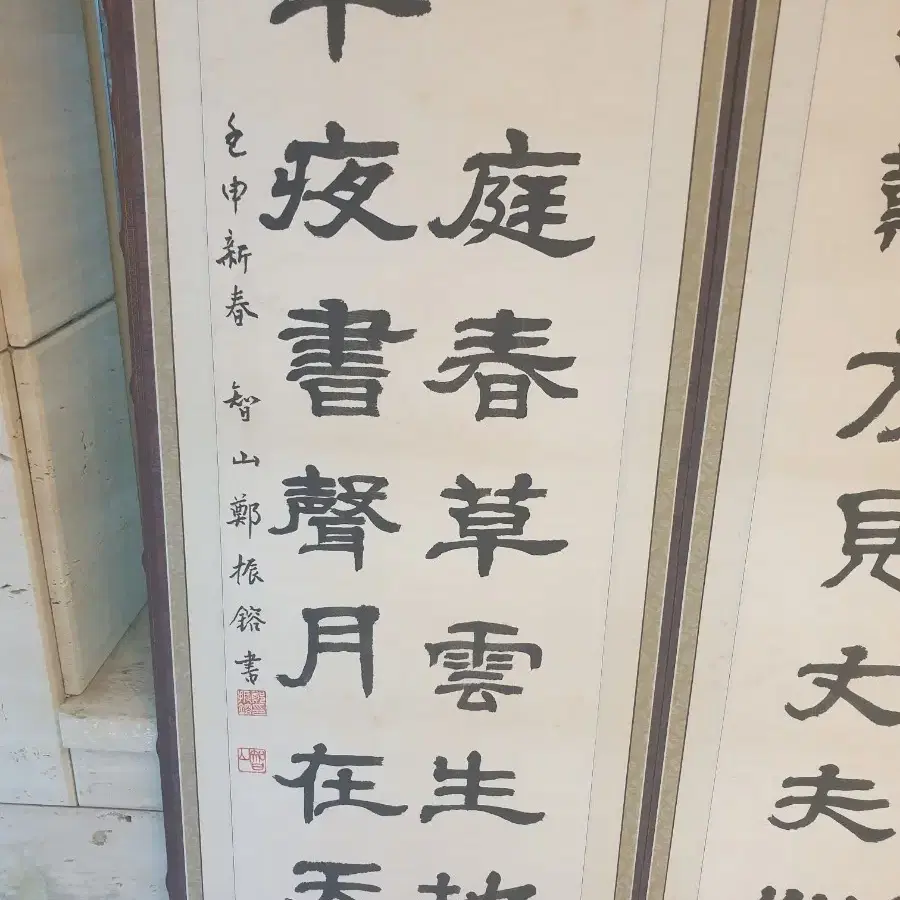 方見丈夫
庭春草雲生地
夜書聲月在天
壬申新春 智山鄭振鎔書
智山